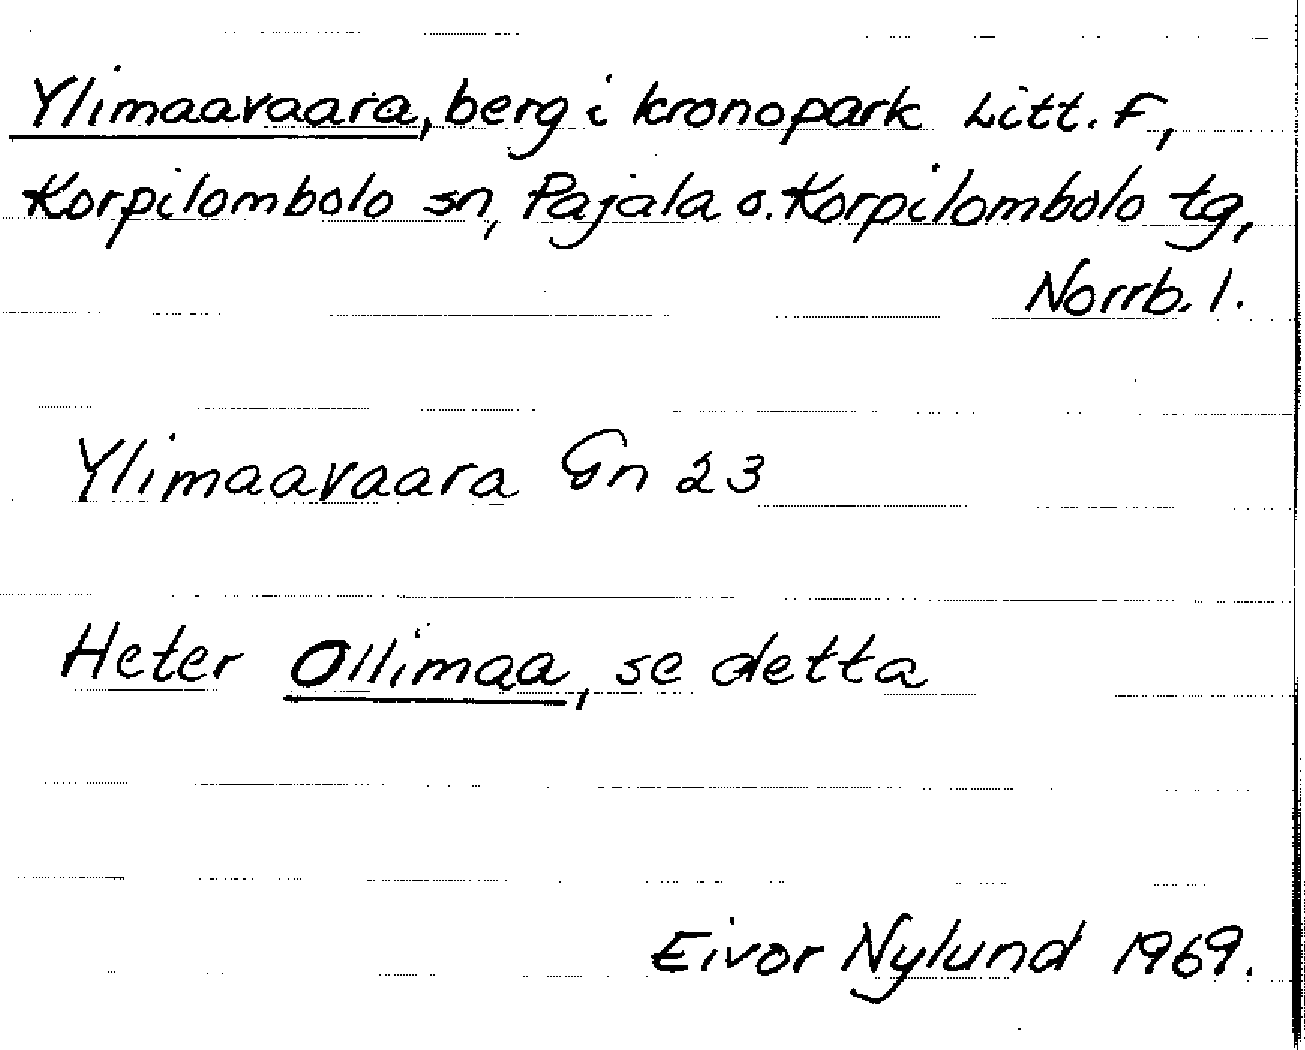 Ylimaavaara, berg i kronopark Litt. F,
Korpilombolo sn, Pajala o. Korpilombolo tg,
Norrb. l.
Ylimaavaara Gn 23
Heter Ollimaa, se detta
Eivor Nylund 1969.